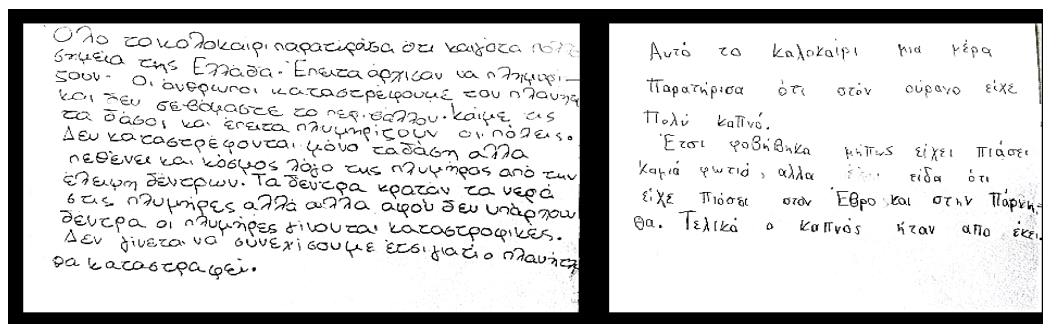 Όλο το κολοκαιρι παρατιράσα ότι καιγότα πολλ
σημεία της Ελλάδα. Επειτα άρχισαν να πλημυρι-
ζουν. Οι άνθρωποι καταστρέφουμε τον πλανήτη
και δεν σεβόμαστε το περιβάλλον. καίμε τις
τα δάσοι και έπειτα πλυμηρίζουν οι πόλεις.
Δεν καταστρέφονται μόνο τα δάση αλλα
πεθένει και κόσμος λόγο της πλυμήρας από την
έλειψη δέντρων. Τα δεντρα κραταν τα νερά
στις πλυμήρες αλλά αλλα αφού δεν υπάρχου
δεντρα οι πλυμήρες γίνονται καταστροφικές.
Δεν γίνεται να συνεχίσουμε έτσι γιατί ο πλανήτη
θα καταστραφεί.
Αυτό το καλοκαίρι μια μέρα
Παρατήρισα ότι στόν ούρανο είχε
Πολύ καπνό.
Έτσι φοβήθηκα μήπως είχει πιάσει
καμιά φωτιά, αλλα είδα ότι
είχε πιάσει στόν Έθρο και στην Πάρνη-
θα. Τελικά ο καπνός ήταν απο έκει.